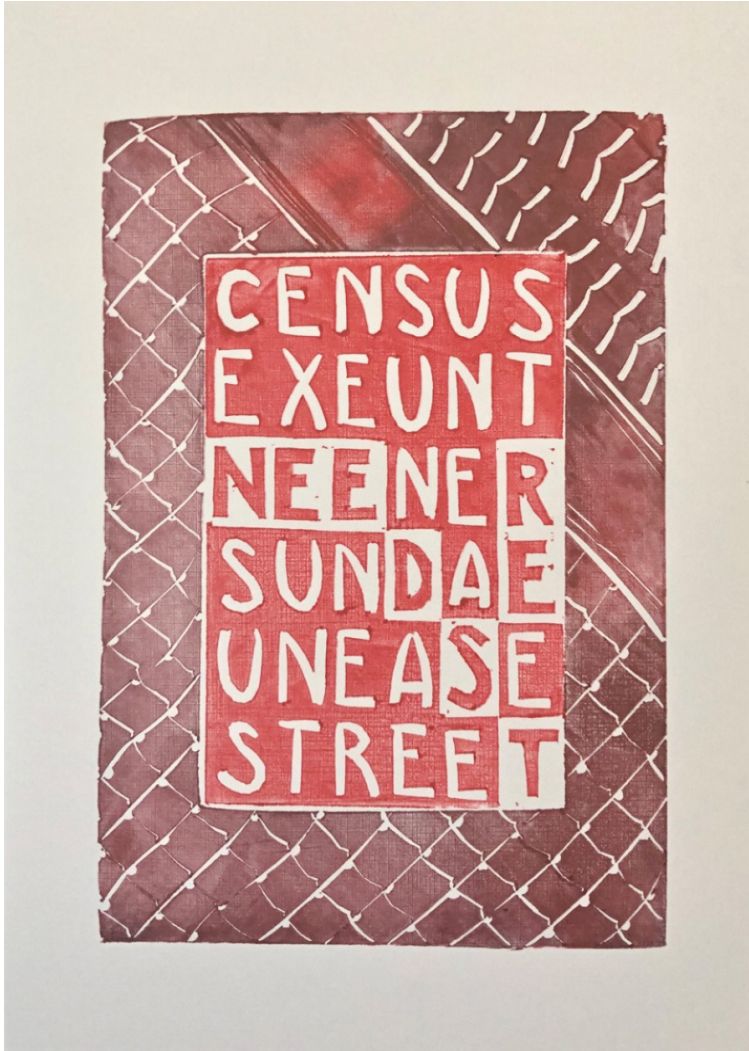 CENSUS
EXEUNT
NEENER
SUNDAE
UNEASE
STREET